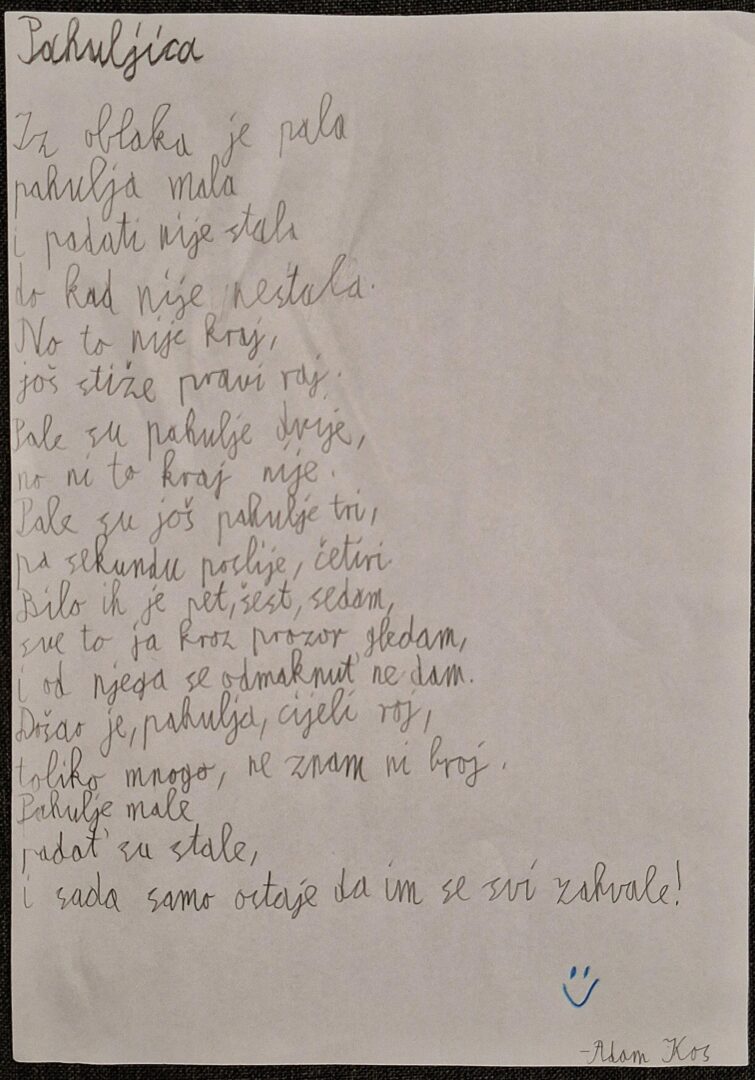 Pahuljica
Iz oblaka je pala
pahulja mala
i padati nije stala
do kad nije nestala.
No to nije kraj,
još stiže pravi raj.
Pale su pahulje dvije,
no ni to kraj nije.
Pale su još pahulje tri,
pa sekundu poslije, četiri
Bilo ih je pet, šest, sedam,
sve to ja kroz prozor gledam,
i od njega se odmaknut' ne dam.
Došao je, pahulja, cijeli roj,
toliko mnogo, ne znam ni broj.
Pahulje male
padat' su stale,
i sada samo ostaje da im se svi zahvale!
-Adam Kos